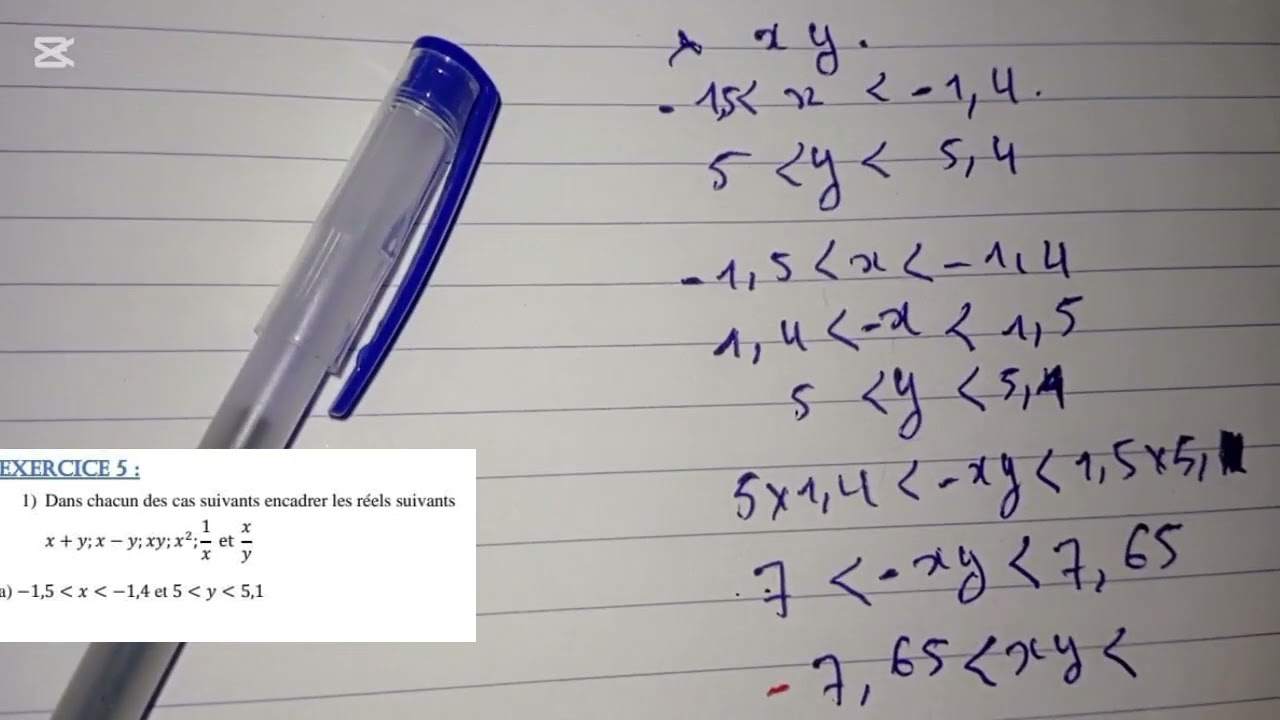 × x y.
- 1,5 < x < - 1, 4.
5 < y < 5, 4
- 1, 5 < x < - 1, 4
1, 4 < - x < 1, 5
5 < y < 5, 1
5 x 1, 4 < - x y < 1, 5 x 5, 1
7 < - x y < 7, 65
- 7, 65 < x y <
EXERCICE 5 :
1) Dans chacun des cas suivants encadrer les réels suivants
x + y; x − y; xy; x²; 1/x et x/y
a) −1,5 < x < −1,4 et 5 < y < 5,1